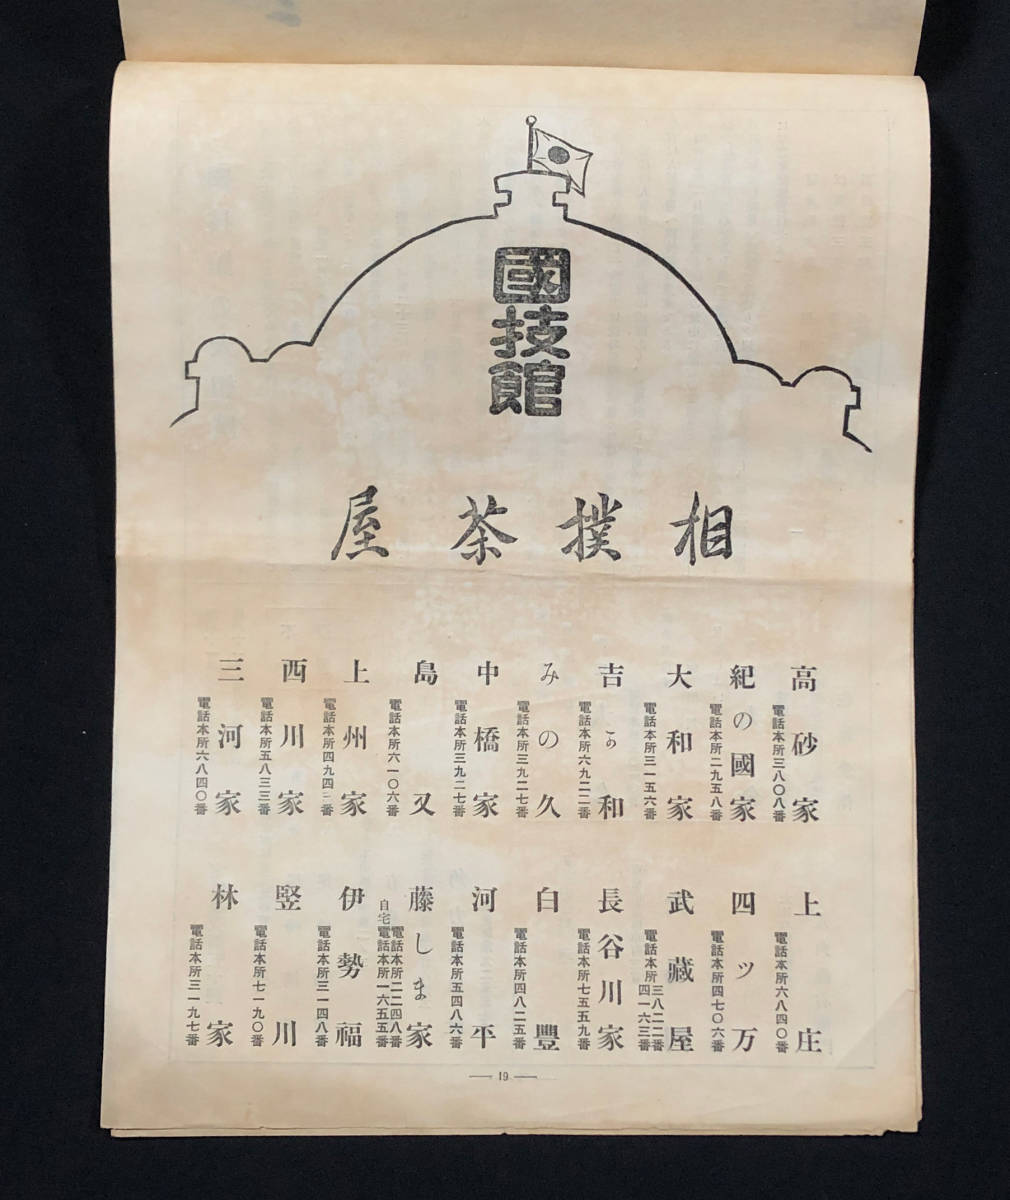 國技館
相撲茶屋
高砂家
電話本所三八〇八番
紀の國家
電話本所二九五八番
大和家
電話本所三一五六番
吉可和
電話本所六九二二番
みの久
電話本所三九二七番
中橋家
電話本所三九二七番
島又
電話本所六一〇六番
上州家
電話本所四九四三番
西川家
電話本所五八三三番
三河家
電話本所六八四〇番
上庄
電話本所六八四〇番
四ッ万
電話本所四七〇六番
武藏屋
電話本所三八二二番
四一六三番
長谷川家
電話本所七五五九番
白豐
電話本所四八二五番
河平
電話本所五四八六番
藤しま家
電話本所二二四八番
自宅電話本所一六五五番
伊勢福
電話本所三一四八番
堅川
電話本所七一九〇番
林家
電話本所三一九七番
19